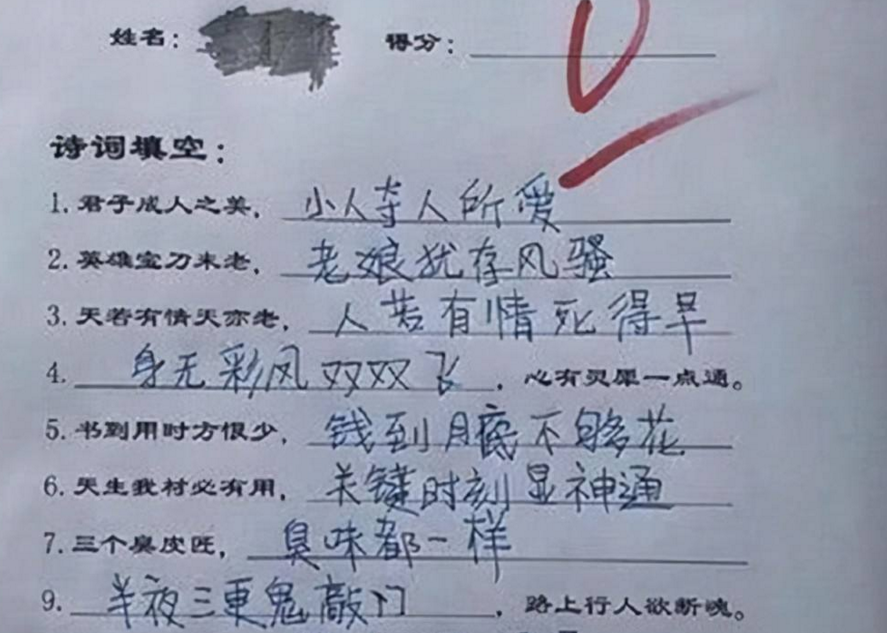 姓名： 得分：
诗词填空：
1. 君子成人之美，小人夺人所爱
2. 英雄宝刀未老，老娘犹存风骚
3. 天若有情天亦老，人若有情死得早
4. 身无彩风双双飞，心有灵犀一点通。
5. 书到用时方恨少，钱到月底不够花
6. 天生我材必有用，关键时刻显神通
7. 三个臭皮匠，臭味都一样
9. 半夜三更鬼敲门，路上行人欲断魂。